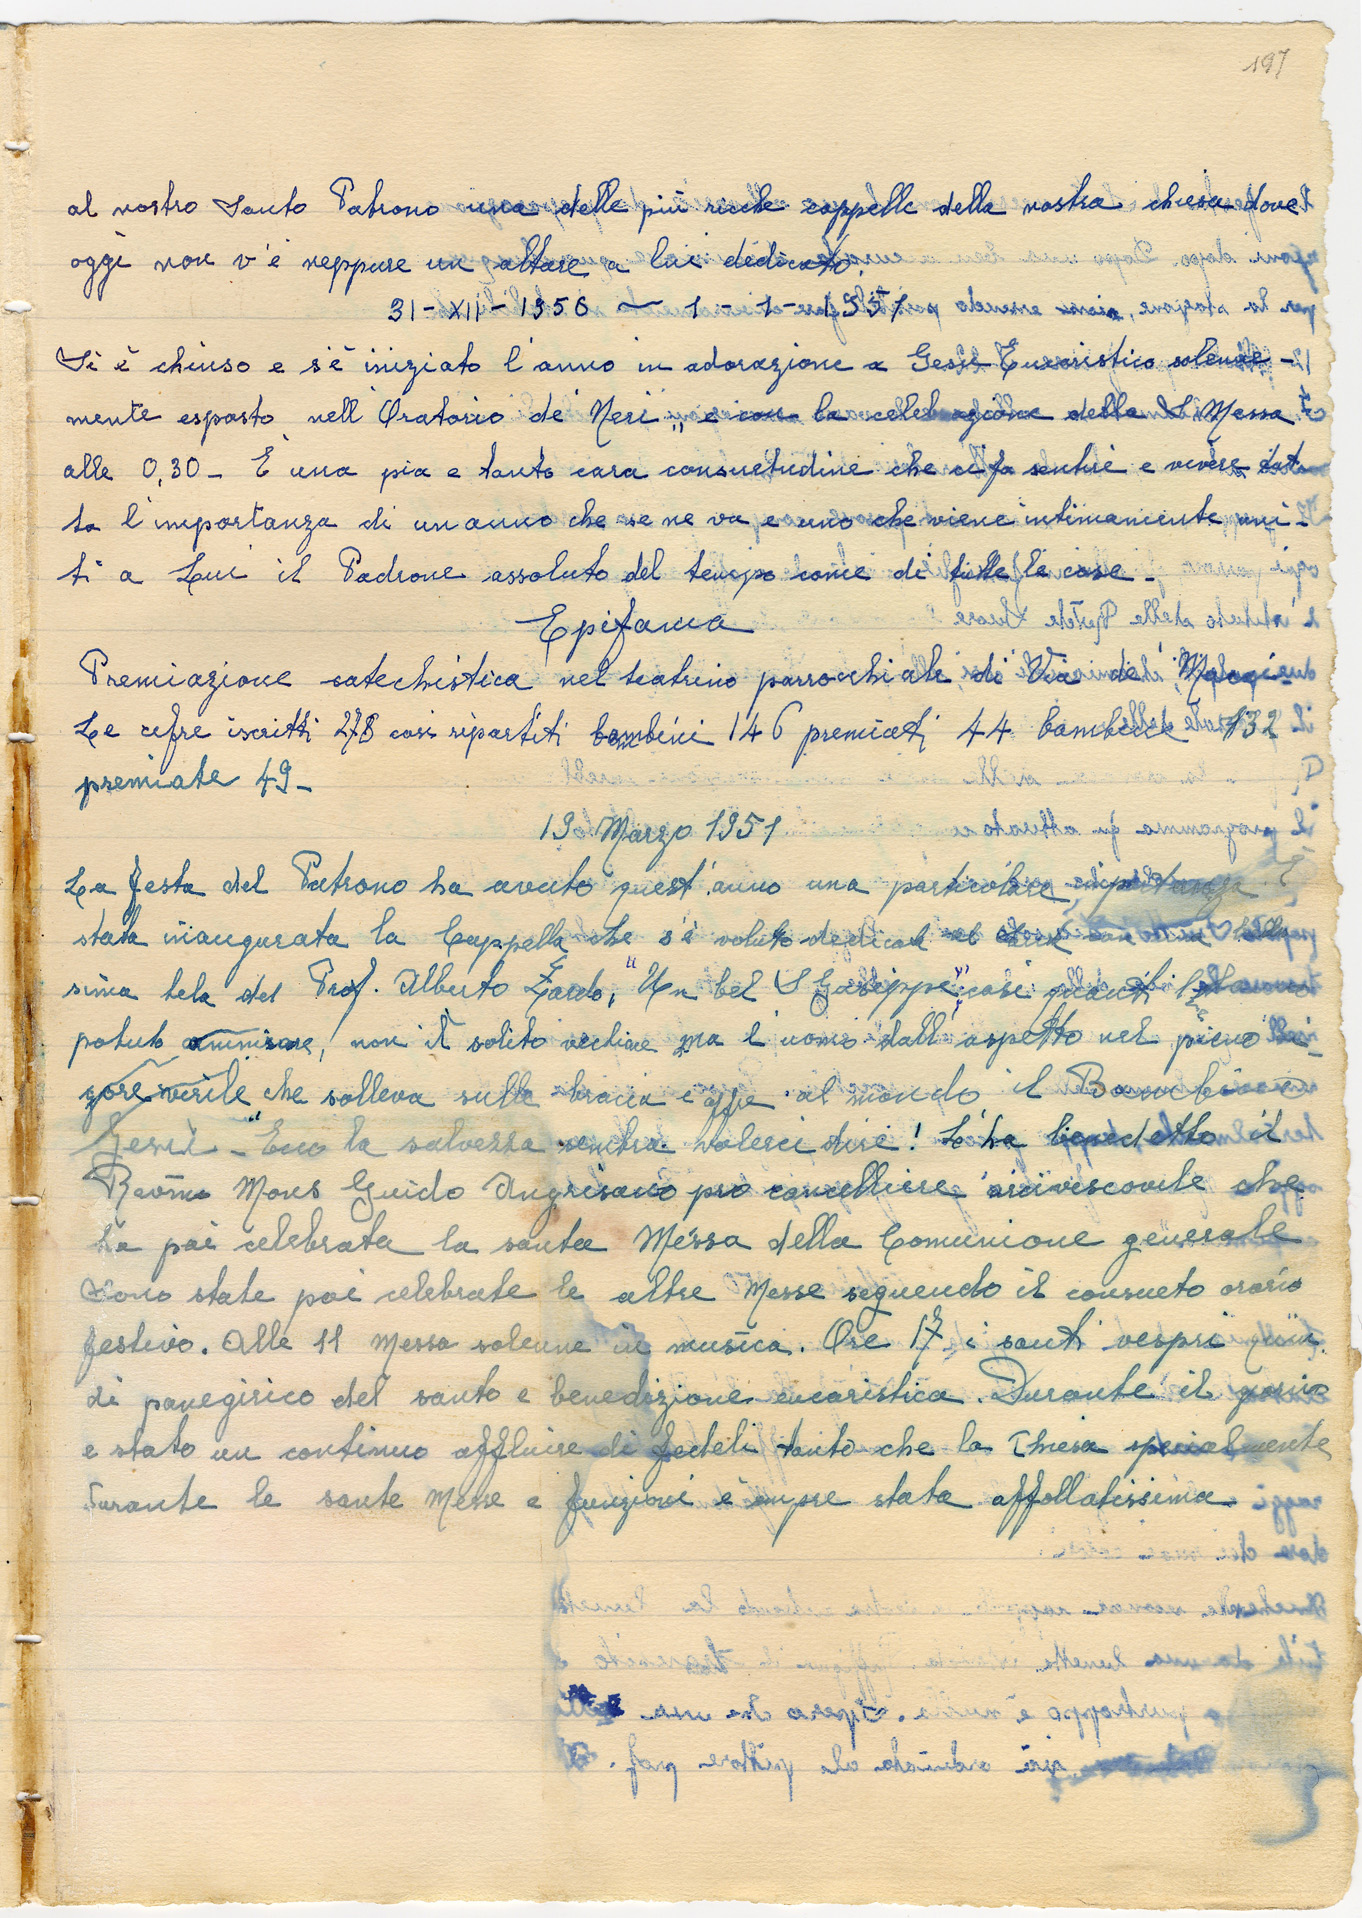 197
al nostro Santo Patrono una delle più ricche cappelle della nostra chiesa dove
oggi non v'è neppure un altare a lui dedicato.
31-XII-1950 ~ 1-1-1951
Si è chiuso e s'è iniziato l'anno in adorazione a Gesù Eucaristico solenne-
mente esposto nell'Oratorio dei Neri,, e con la celebrazione della S. Messa
alle 0,30_ È una pia e tanto cara consuetudine che ci fa sentire e vivere tut-
ta l'importanza di un anno che se ne va e uno che viene intimamente uni-
ti a Lui il Padrone assoluto del tempo come di tutte le cose_
Epifania
Premiazione catechistica nel teatrino parrocchiale di Via de' Magi_
Le cifre iscritti 278 così ripartiti bambini 146 premiati 44 bambine 132
premiate 49_
19 Marzo 1951
La festa del Patrono ha avuto quest'anno una particolare importanza. È
stata inaugurata la Cappella che s'è voluto dedicare con una bellis
sima tela del Prof. Alberto Zardo, "Un bel S Giuseppe" così quanti l'hanno
potuto ammirare, non il solito vecchione ma l'uomo dall'aspetto nel pieno vi-
gore virile che solleva sulle braccia e offre al mondo il Bambino
Gesù - "Ecco la salvezza sembra volerci dire! L'ha benedetto il
Revm̃o Mons Guido Angrisano pro cancelliere arcivescovile che
ha poi celebrata la santa Messa della Comunione generale
Sono state poi celebrate le altre Messe seguendo il consueto orario
festivo. Alle 11 Messa solenne in musica. Ore 17 i santi vespri quin
di panegirico del santo e benedizione eucaristica. Durante il giorno
e stato un continuo affluire di fedeli tanto che la Chiesa specialmente
durante le sante Messe e funzioni è sempre stata affollatissima